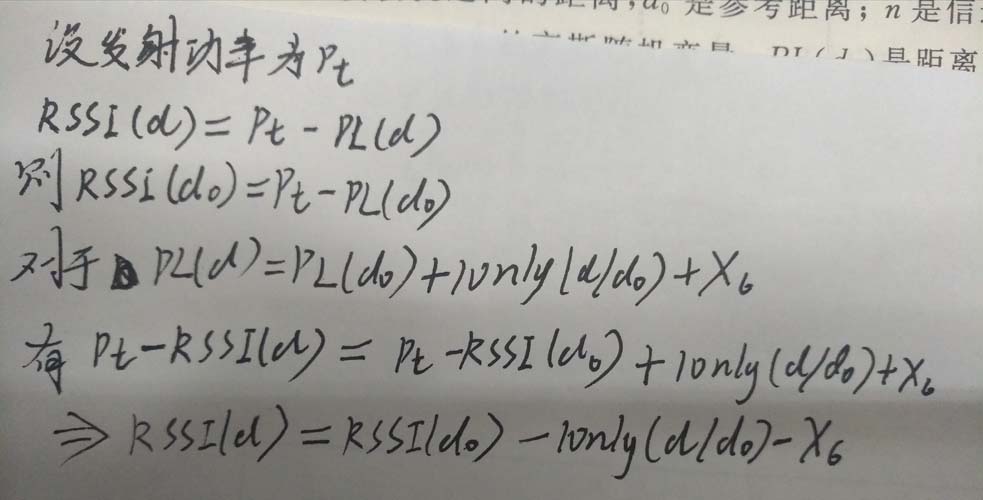 的距离;d₀ 是参考距离; n 是信
是距离
设发射功率为Pt
RSSI(d)=Pt-PL(d)
则RSSI(d₀)=Pt-PL(d₀)
对于 PL(d)=PL(d₀)+10nlg(d/d₀)+Xσ
有 Pt-RSSI(d)=Pt-RSSI(d₀)+10nlg(d/d₀)+Xσ
⇒ RSSI(d)=RSSI(d₀)-10nlg(d/d₀)-Xσ